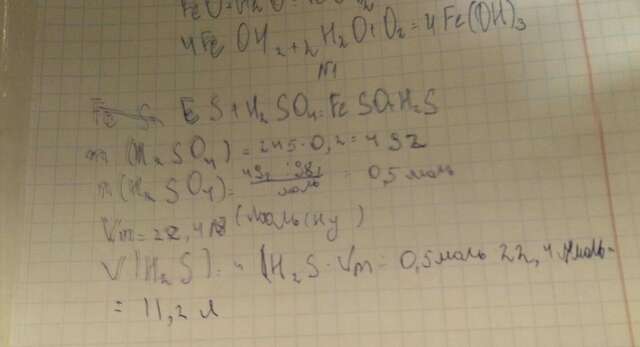 4Fe OH2 + 2 H2O + O2 = 4Fe(OH)3
№1
Fe S + H2 SO4 = Fe SO4 H2S
m (H2 SO4) = 245 · 0,2 = 49г
n (H2 SO4) = 49г · 98г/моль = 0,5 моль
Vm = 22,4 л (моль (ну)
V (H2S) = n (H2S · Vm = 0,5 моль 22,4 л/моль =
= 11,2 л